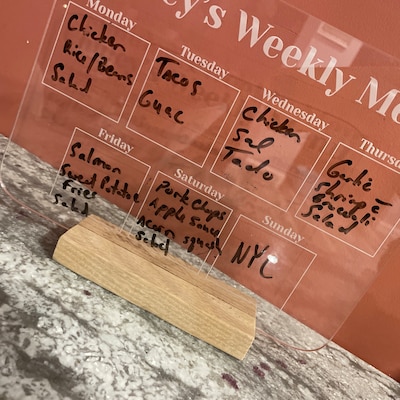 ey's Weekly Me
Monday
Chicken
Rice/Beans
Salad
Tuesday
Tacos
Guac
Wednesday
Chicken
Sal
Tado
Thurs
Garlic
Shrimp
Broccoli
Salad
Friday
Salmon
Sweet Potatoe
Fries
Salad
Saturday
Pork Chops
Apple Sauce
Acorn squash
Salad
Sunday
NYC